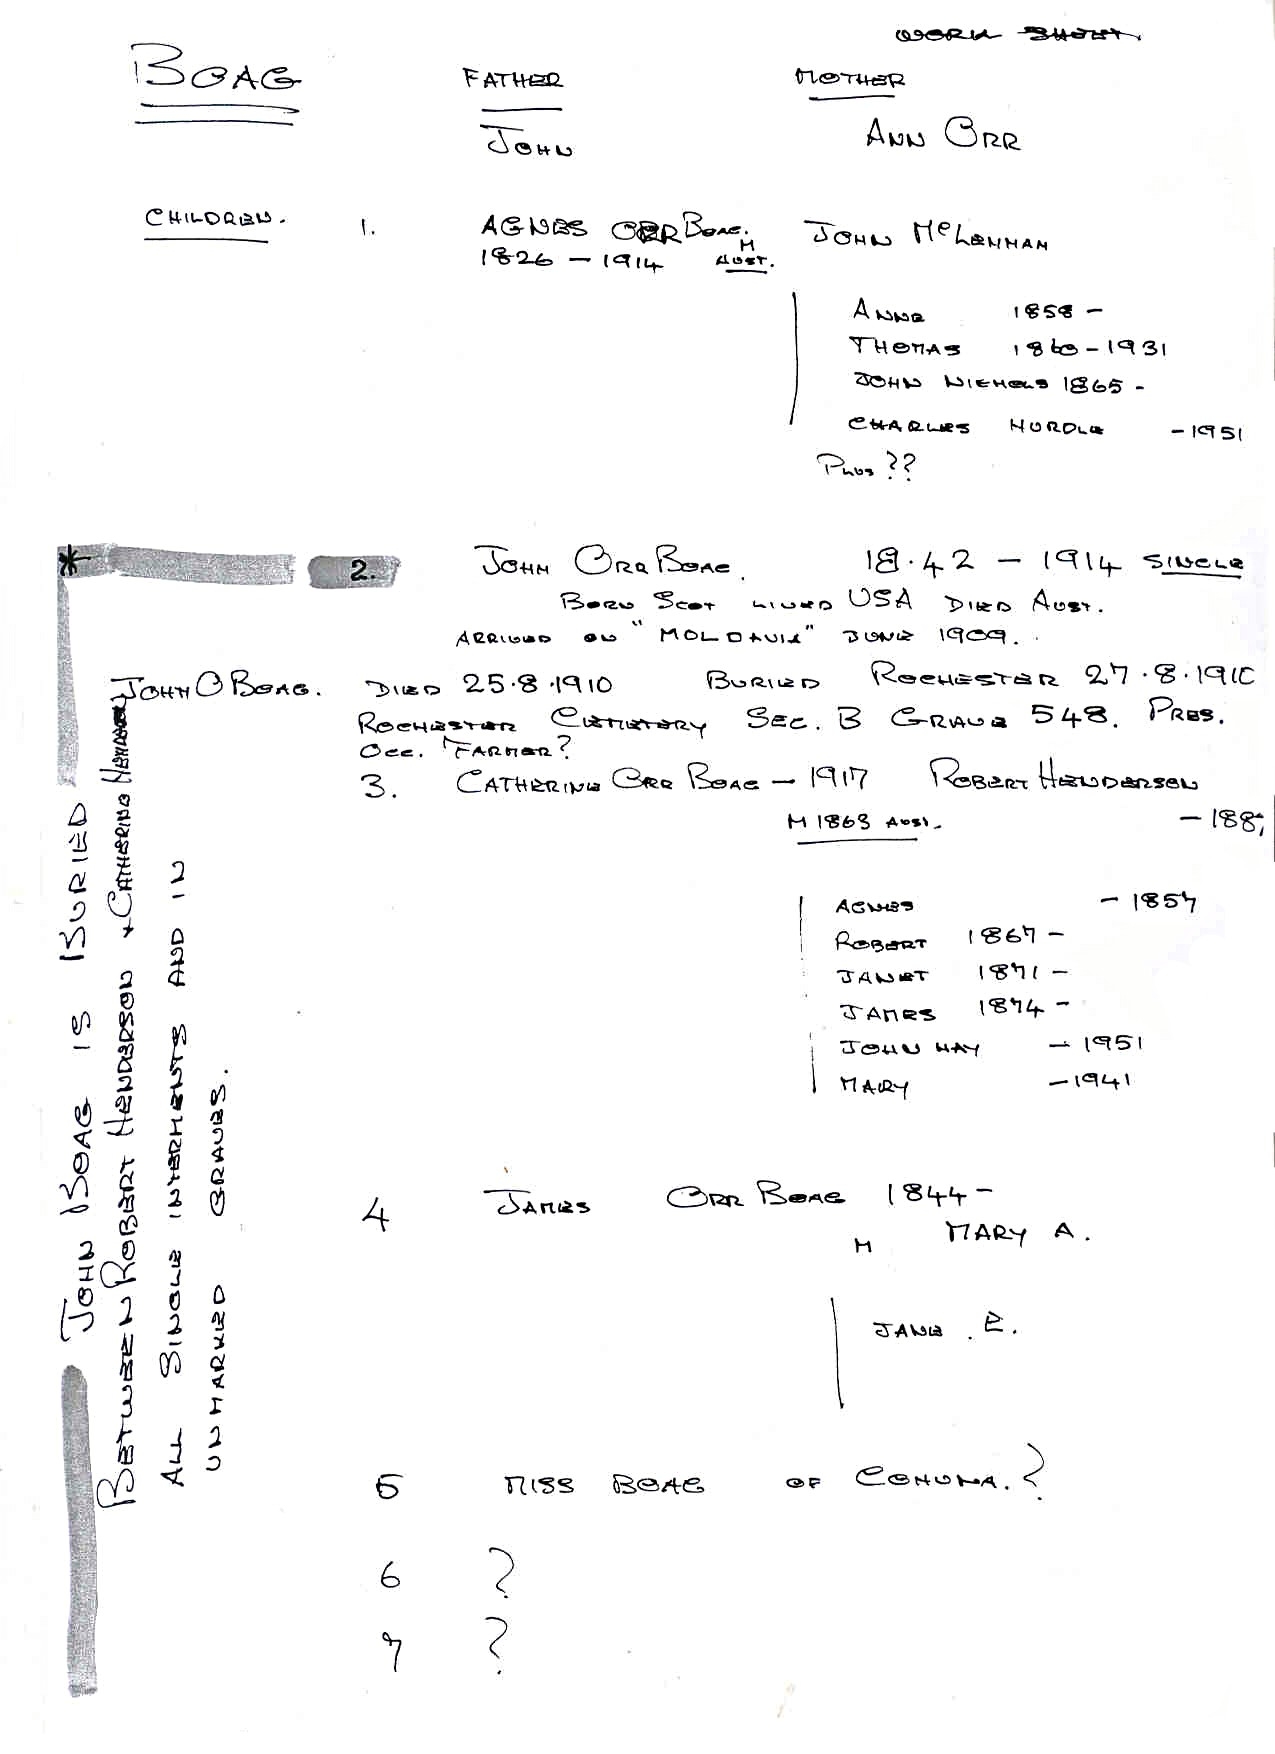 WORK SHEET.
BOAG FATHER MOTHER
JOHN ANN ORR
CHILDREN. 1. AGNES ORR BOAG. M JOHN McLENNAN
1826 - 1914 AUST.
ANNE 1858 -
THOMAS 1860 - 1931
JOHN NICHOLS 1865 -
CHARLES HURDLE - 1951
PLUS ??
* 2. JOHN ORR BOAG. 18.42 - 1914 SINGLE
BORN SCOT LIVED USA DIED AUST.
ARRIVED ON "MOLDAVIA" JUNE 1909.
JOHN O BOAG. DIED 25.8.1910 BURIED ROCHESTER 27.8.1910
ROCHESTER CEMETERY SEC. B GRAVE 548. PRES.
OCC. FARMER?
3. CATHERINE ORR BOAG - 1917 ROBERT HENDERSON
M 1863 AUST. - 188
AGNES - 1857
ROBERT 1867 -
JANET 1871 -
JAMES 1874 -
JOHN HAY - 1951
MARY - 1941
4 JAMES ORR BOAG 1844 -
M MARY A.
JANE . E.
5 MISS BOAG OF COHUNA. ?
6 ?
7 ?
JOHN BOAG IS BURIED
BETWEEN ROBERT HENDERSON + CATHERINE HENDERSON
ALL SINGLE INTERMENTS AND IN
UNMARKED GRAVES.